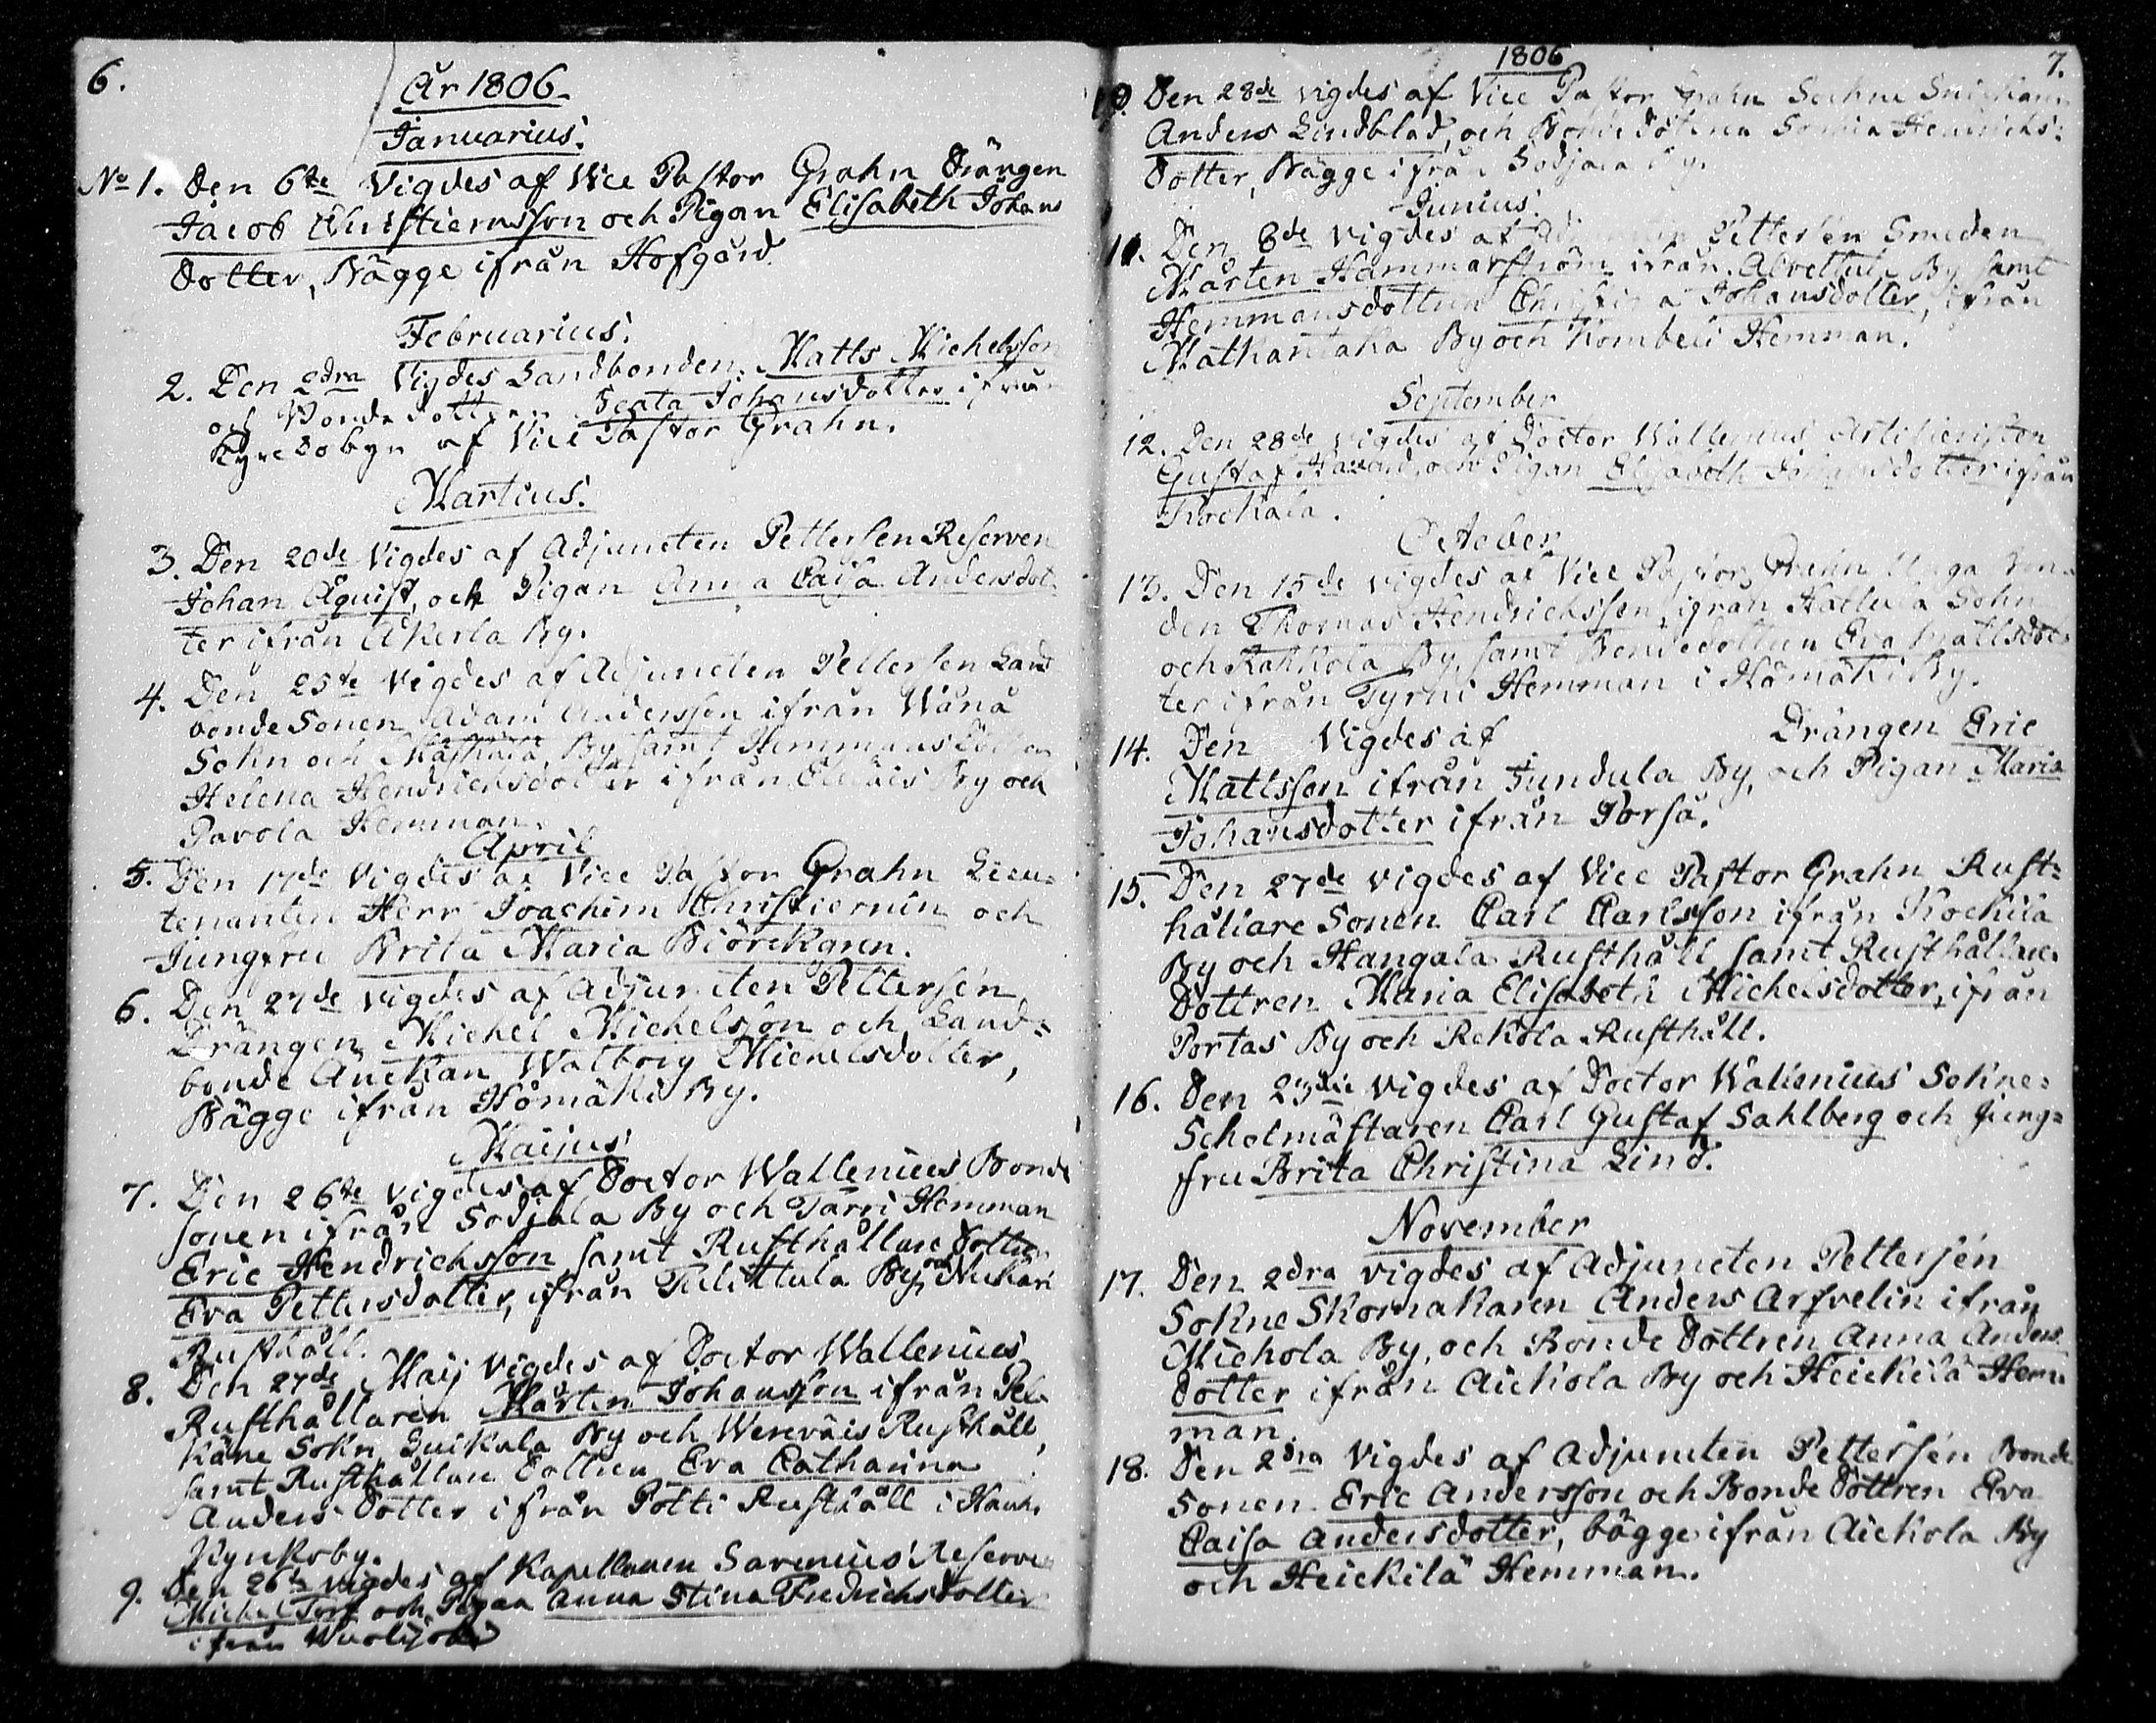 6.
År 1806.
Januarius.
No 1. Den 6te Vigdes af Vice Pastor Grahn Drängen
Jacob Christiernsson och Pigan Elisabeth Johans
Dotter, Bägge ifrån Hofgård
Februarius.
2. Den 2dra Vigdes Landbonden Matts Michelsson
och Bonde dottren Beata Johansdotter ifrån
Kyrckobyn af Vice Pastor Grahn.
Martius.
3. Den 20de Vigdes af Adjuncten Pettersen Reserven
Johan Äquist, och Pigan Anna Caisa Andersdot
ter ifrån Åkerla By.
4. Den 25te Vigdes af Adjuncten Pettersen Land
bonde Sonen Adam Andersson ifrån Wånå
Sokn och By samt Hemmansdottren
Helena Hendrichsdotter ifrån By och
Pavola Hemman.
April
5. Den 17de Vigdes af Vice Pastor Grahn Lieu-
tenanten Herr Joachim Christiernin och
Jungfru Brita Maria Biörckgren.
6. Den 27de Vigdes af Adjuncten Pettersén
Drängen Michel Michelsson och Land=
bonde Änckan Walborg Michelsdotter,
Bägge ifrån Hömäki By.
Maijus
7. Den 26te Vigdes af Doctor Wallenius Bonde
sonen ifrån Sodjala By och Tarri Hemman
Eric Hendrichsson samt Rusthållare Dottren
Eva Pettersdotter, ifrån Tulittula By och Nickari
Rusthåll.
8. Den 27de Maij Vigdes af Doctor Wallenius
Rusthållaren Mårten Johansson ifrån Pel-
käne Sokn, Luikala By och Werevåis Rusthåll,
samt Rusthållare Dottren Eva Catharina
Anders Dotter ifrån Potti Rusthåll i Hauho
Kyrkoby.
9. Den 26te vigdes af Kapellanen Savenius Reserven
Michel Torf och Pigan Anna Stina Fredrichsdotter
ifrån
1806
7.
10. Den 28de vigdes af Vice Pastor Grahn Sockne Snickaren
Anders Lindblad, och Bonde Döttren Sophia Hendrichs=
Dotter, Bägge ifrån Sodjala By.
Junius.
11. Den 8de vigdes af Adjuncten Pettersén Smeden
Mårten Hammarström ifrån Alvettula By samt
Hemmansdottren Christina Johansdotter, ifrån
Matkantaka By och Hemman.
September
12. Den 28de vigdes af Doctor Wallenius
Gustaf och Pigan Elisabeth Johansdotter ifrån
Kockila.
October
13. Den 15de vigdes af Vice Pastor Grahn Unga bon-
den Thomas Hendrichsson ifrån Hattula Sokn
och Rahkola By, samt Bondedottren Eva Mattsdot=
ter ifrån Tyrni Hemman i Hömäki By.
14. Den Vigdes af Drängen Eric
Mattsson ifrån Sundula By, och Pigan Maria
Johansdotter ifrån Porsä.
15. Den 27de vigdes af Vice Pastor Grahn Rust=
hållare Sonen Carl Carlsson ifrån Kockila
By och Hangala Rusthåll samt Rusthållare
Dottren Maria Elisabeth Michelsdotter, ifrån
Portas By och Rekola Rusthåll.
16. Den 23die Vigdes af Doctor Wallenius Sokne=
Scholmästaren Carl Gustaf Sahlberg och Jung=
fru Brita Christina Lind.
November
17. Den 2dra vigdes af Adjuncten Pettersén
Sokne Skomakaren Anders Arfvelin ifrån
Miehola By, och Bonde Döttren Anna Anders
dotter ifrån Aickola By och Heickilä Hem-
man.
18. Den 2dra Vigdes af Adjuncten Pettersén Bonde
Sonen Eric Andersson och Bonde Döttren Eva
Caisa Andersdotter, bägge ifrån Aickola By
och Heickilä Hemman.